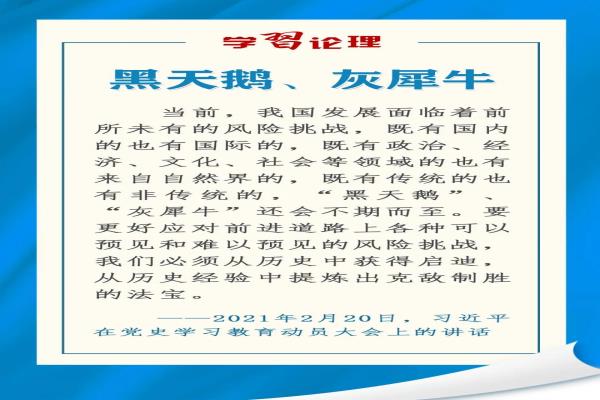 学习论理
黑天鹅、灰犀牛
当前，我国发展面临着前
所未有的风险挑战，既有国内
的也有国际的，既有政治、经
济、文化、社会等领域的也有
来自自然界的，既有传统的也
有非传统的，“黑天鹅”、
“灰犀牛”还会不期而至。要
更好应对前进道路上各种可以
预见和难以预见的风险挑战，
我们必须从历史中获得启迪，
从历史经验中提炼出克敌制胜
的法宝。
——2021年2月20日，习近平
在党史学习教育动员大会上的讲话